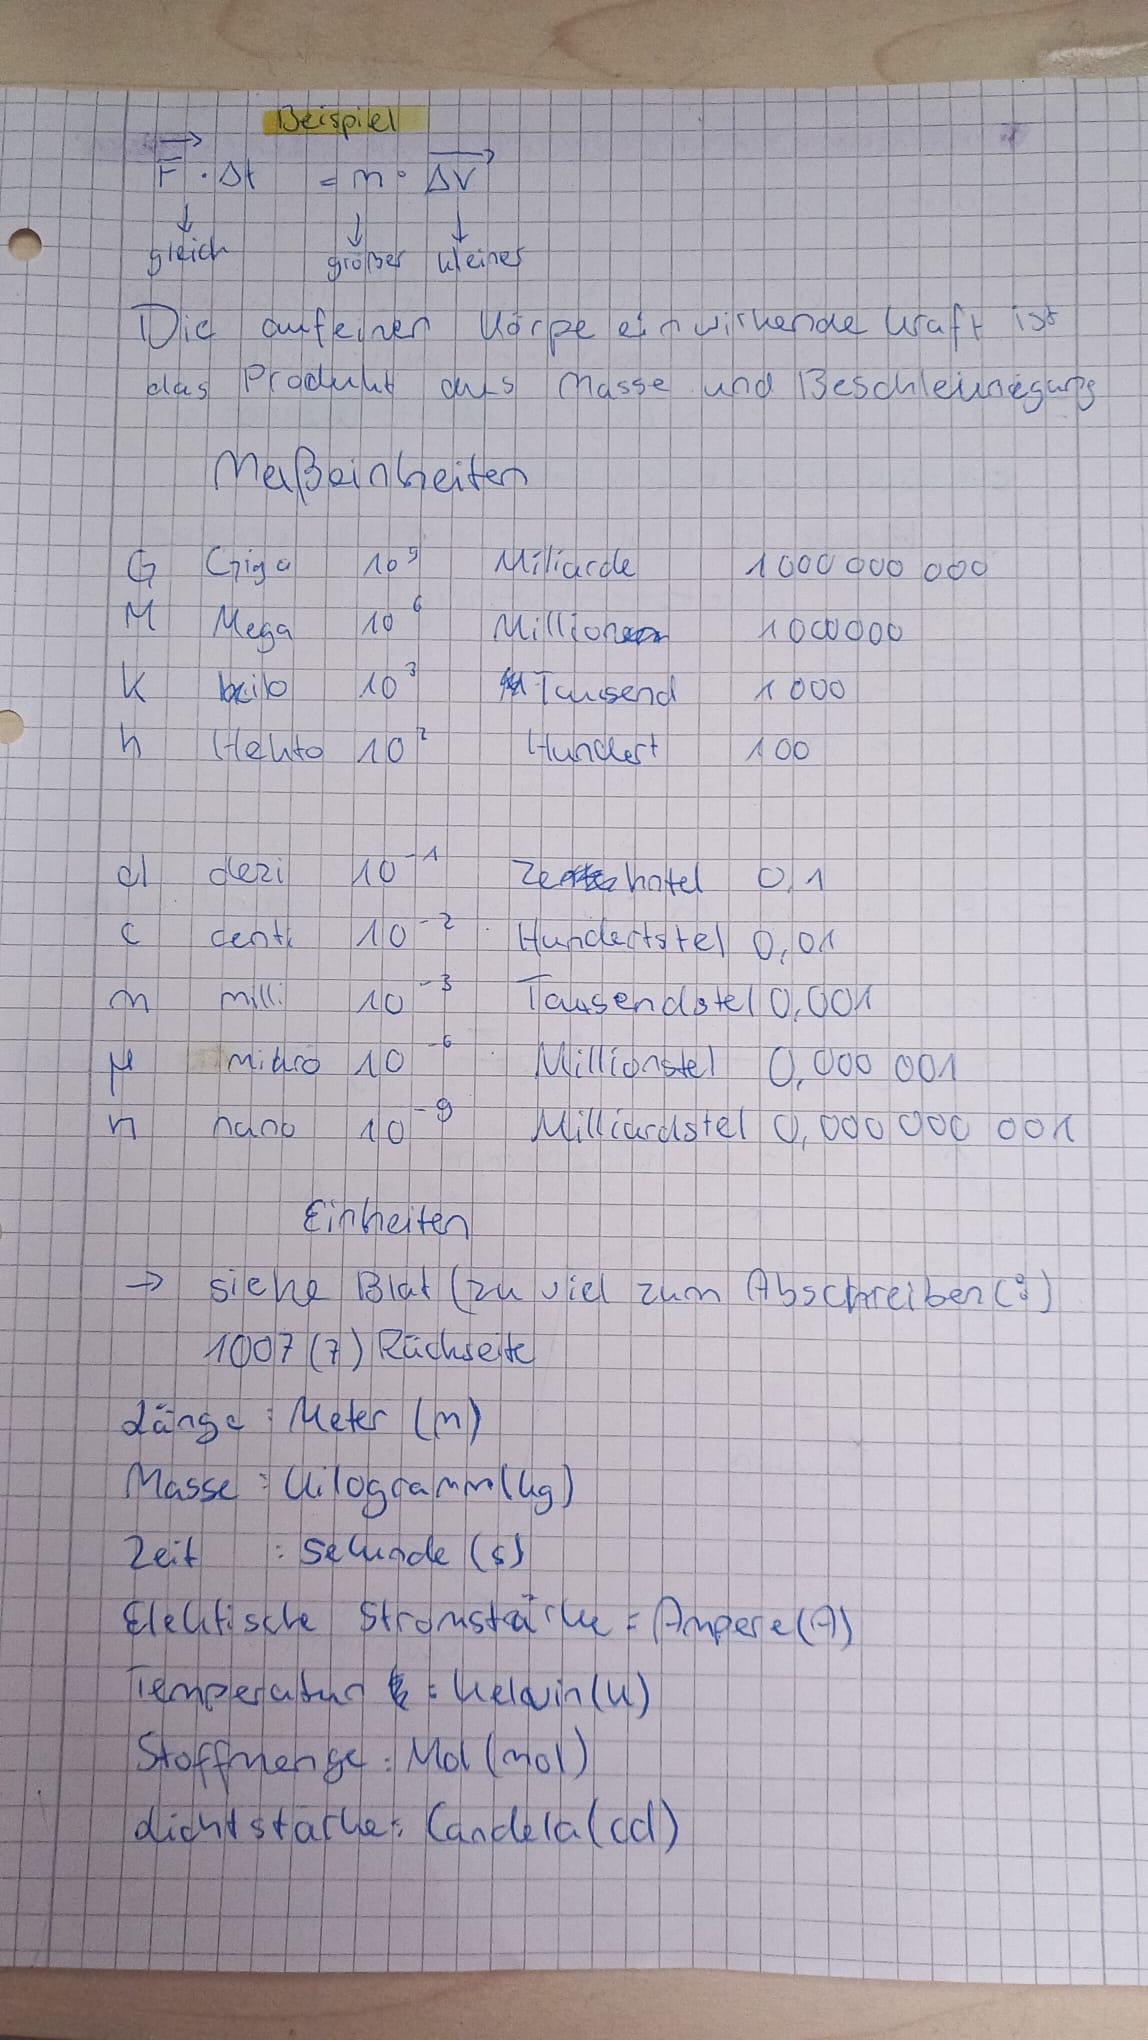 Beispiel
F · Δt = m · ΔV
gleich größer kleiner
Die auf einen Körpe einwirkende Kraft ist
das Produkt aus Masse und Beschleunigung
Maßeinheiten
G Giga 10⁹ Miliarde 1000 000 000
M Mega 10⁶ Million 1000000
k kilo 10³ Tausend 1000
h Hekto 10² Hundert 100
d dezi 10⁻¹ Zehntel 0,1
c centi 10⁻² Hundertstel 0,01
m milli 10⁻³ Tausendstel 0,001
µ mikro 10⁻⁶ Millionstel 0,000 001
n nano 10⁻⁹ Milliardstel 0,000 000 001
Einheiten
→ siehe Blat (zu viel zum Abschreiben (:)
1007 (7) Rückseite
Länge : Meter (m)
Masse : Kilogramm (kg)
Zeit : Sekunde (s)
Elektische Stromstärke : Ampere (A)
Temperatur : Kelvin (K)
Stoffmenge : Mol (mol)
Lichtstärke : Candela (cd)